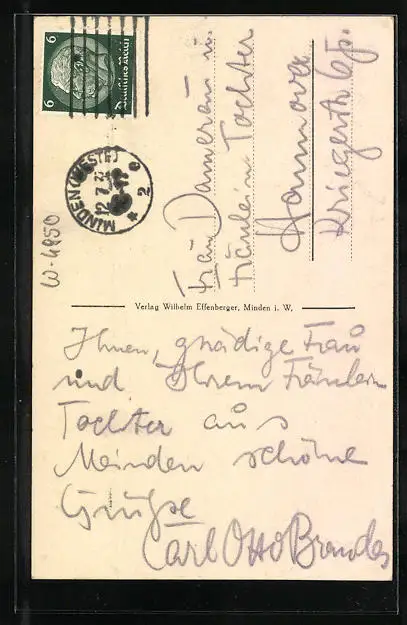 6 Deutsches Reich 6
MINDEN (WESTF)
12.7.
* 2 e
W-4950
Frau Damerau u.
Fräulein Tochter
Hannover
Verlag Wilhelm Effenberger, Minden i. W.
Ihnen, gnädige Frau
und Ihrem Fräulein
Tochter aus
Meinden schöne
Grüße
Carl Otto Brandes